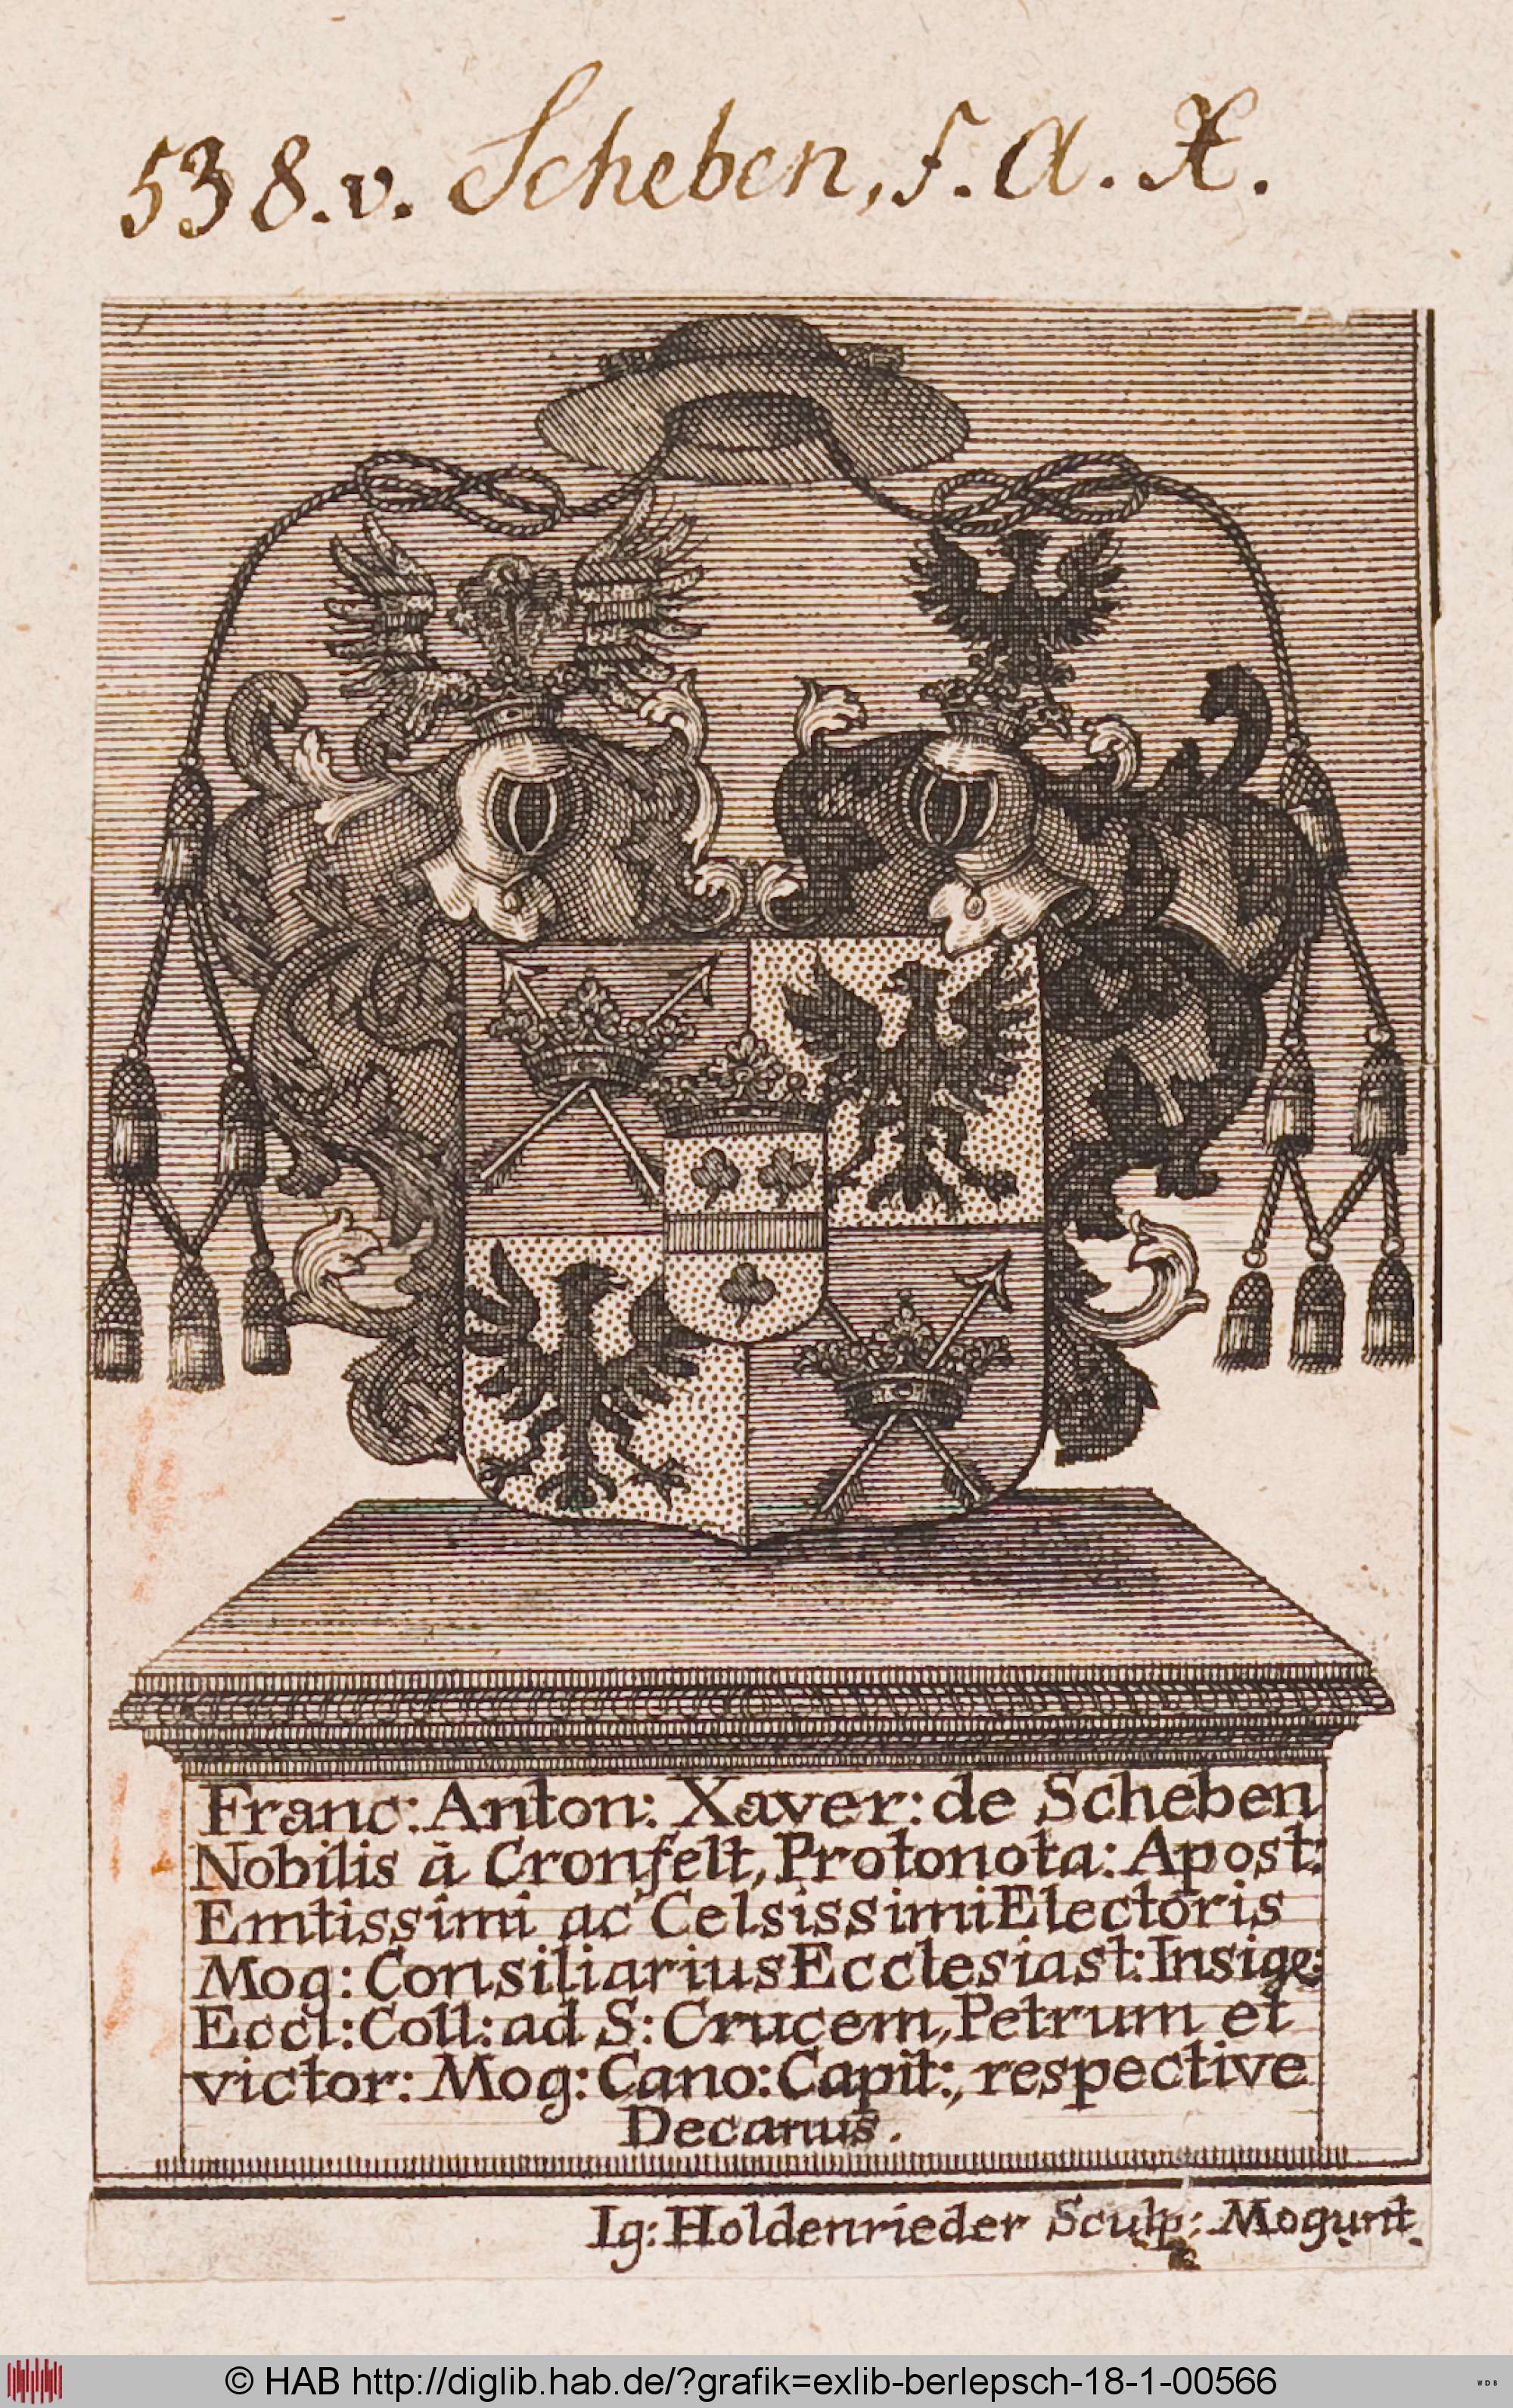 538. v. Scheben, F. A. X.
Franc: Anton: Xaver: de Scheben
Nobilis à Cronfelt, Protonota: Apost:
Emtissimi ac Celsissimi Electoris
Mog: Consiliarius Ecclesiast: Insige:
Eccl: Coll: ad S: Crucem, Petrum et
victor: Mog: Cano: Capit:, respective
Decanus.
Ig: Holdenrieder Sculp: Mogunt.
© HAB http://diglib.hab.de/?grafik=exlib-berlepsch-18-1-00566
WDB